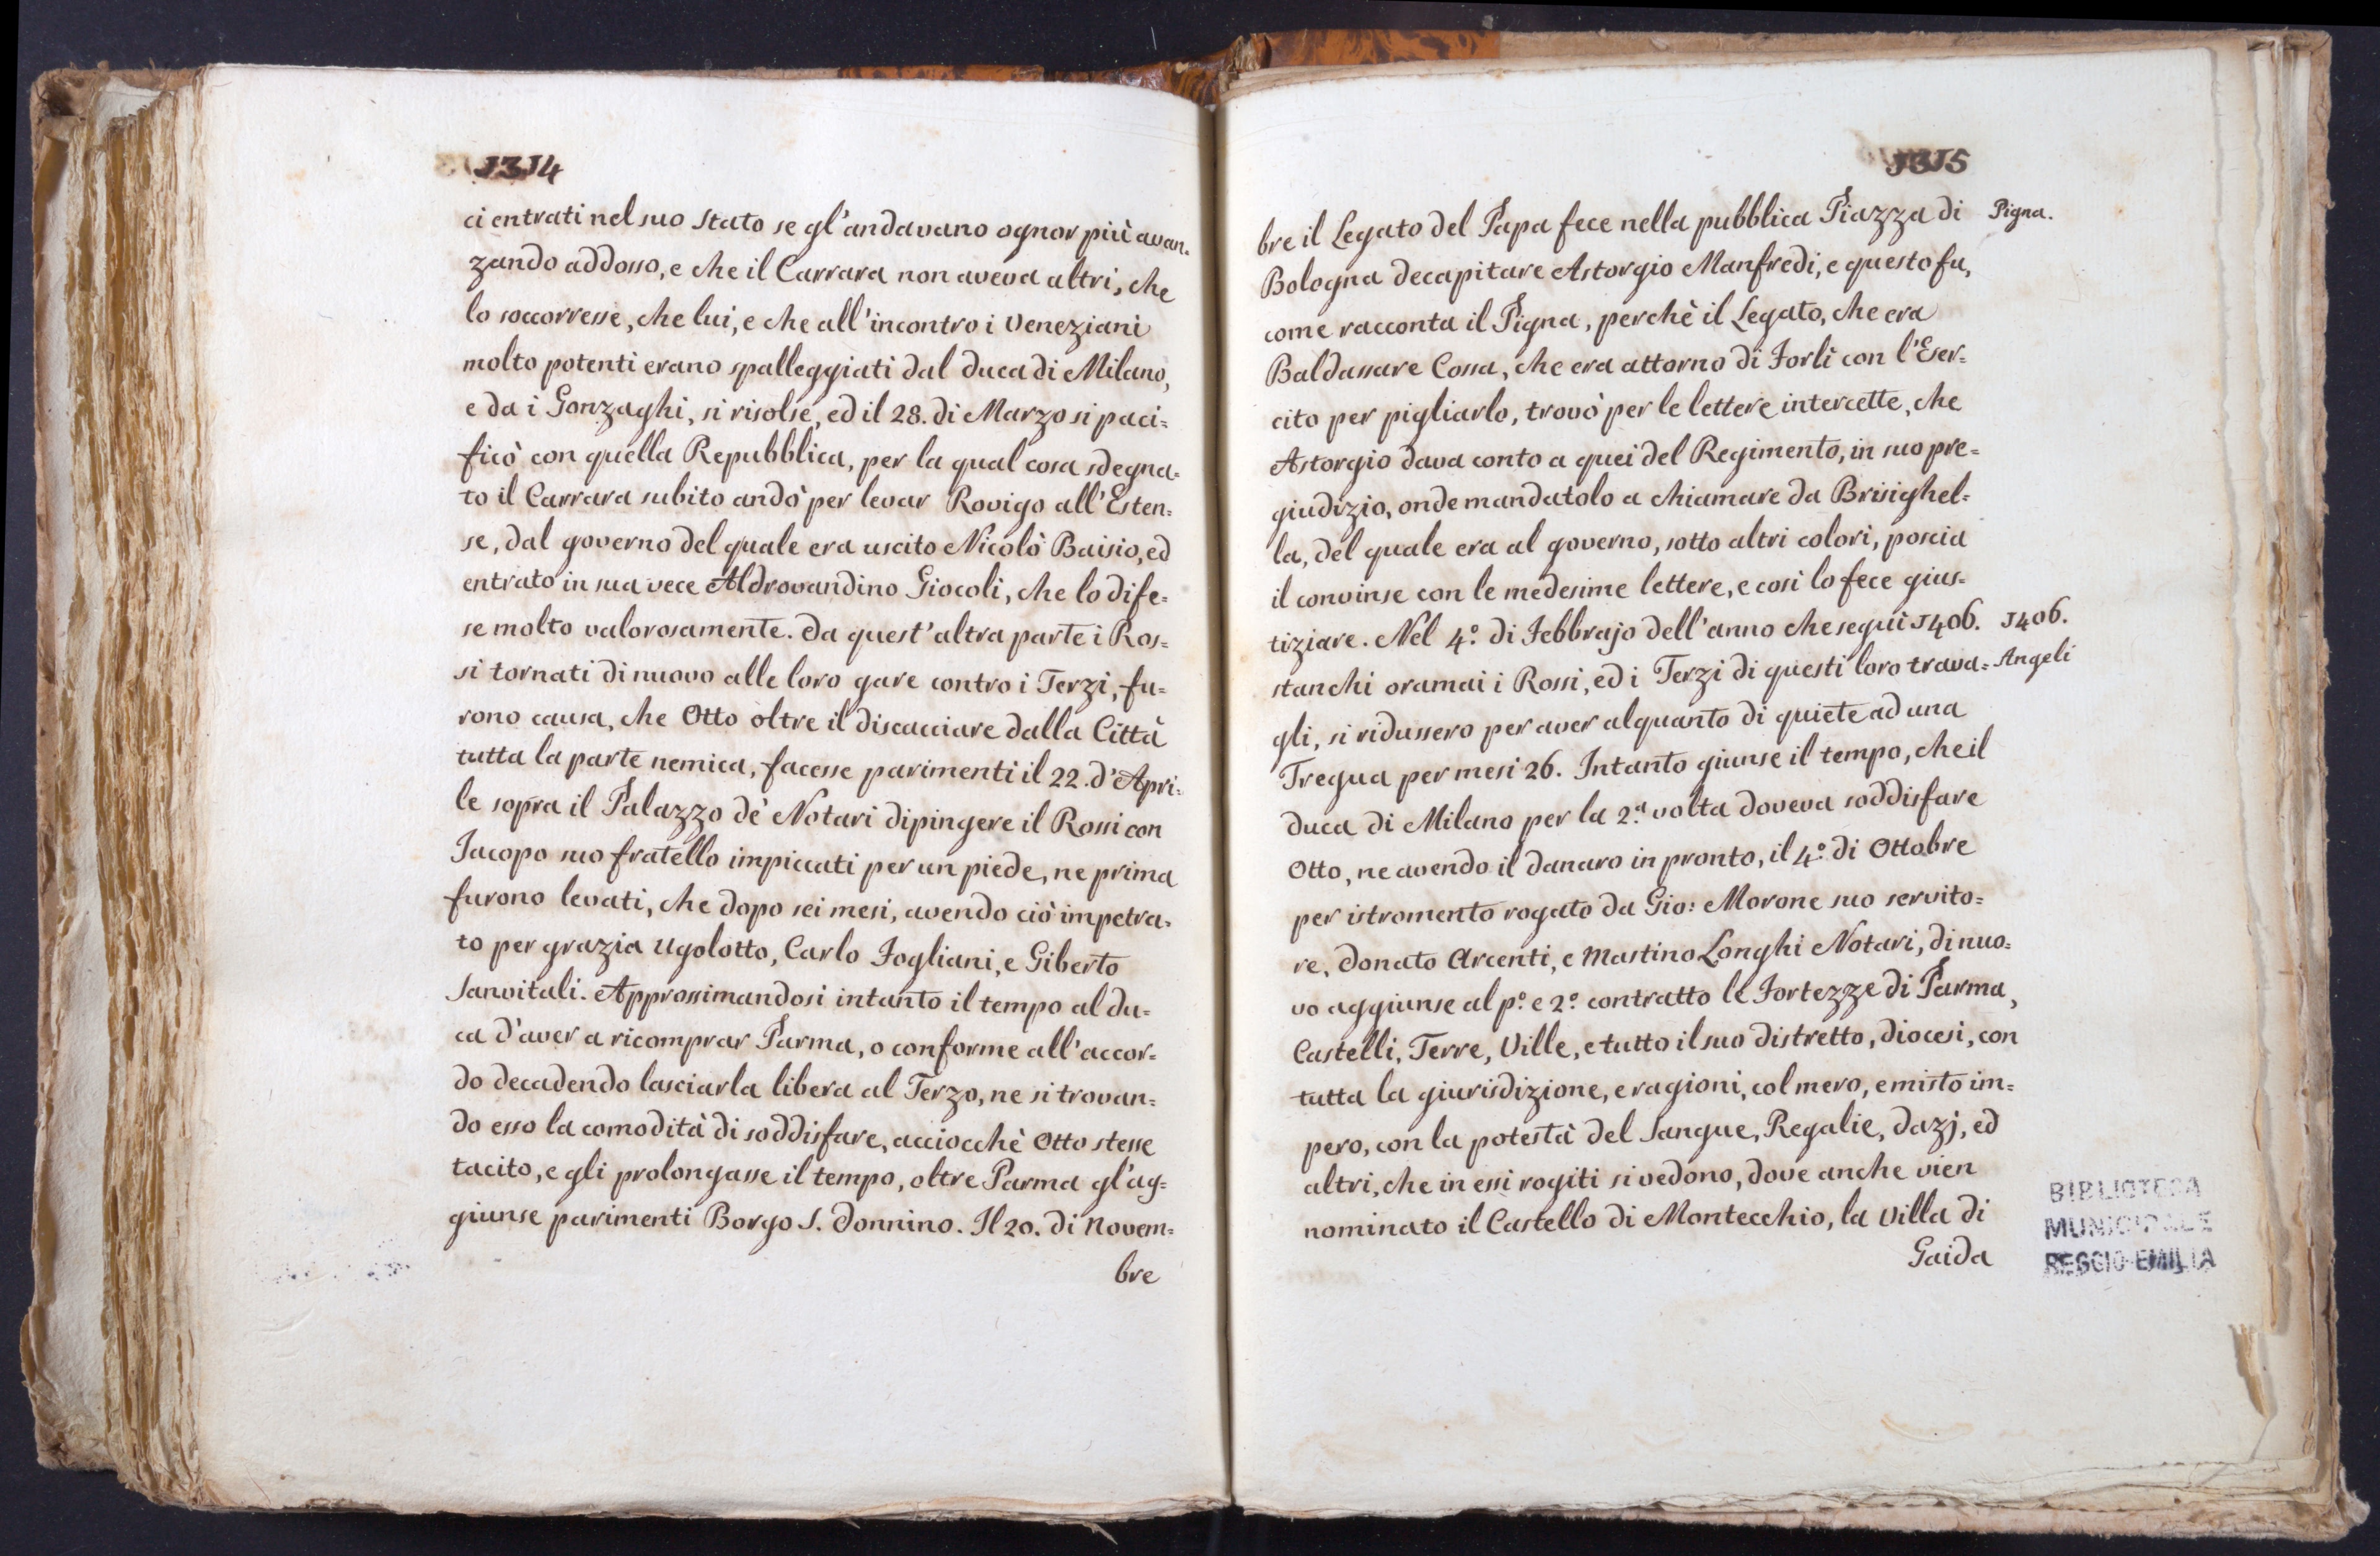 1314
ci entrati nel suo Stato se gl'andavano ognor più avan=
zando addosso, e che il Carrara non aveva altri, che
lo soccorresse, che lui, e che all'incontro i Veneziani
molto potenti erano spalleggiati dal Duca di Milano,
e da i Gonzaghi, si risolse, ed il 28. di Marzo si paci=
ficò con quella Repubblica, per la qual cosa sdegna=
to il Carrara subito andò per levar Rovigo all'Esten=
se, dal governo del quale era uscito Nicolò Baisio, ed
entrato in sua vece Aldrovandino Giocoli, che lo dife=
se molto valorosamente. Da quest'altra parte i Ros=
si tornati di nuovo alle loro gare contro i Terzi, fu=
rono causa, che Otto oltre il discacciare dalla Città
tutta la parte nemica, facesse parimenti il 22. d'Apri=
le sopra il Palazzo de' Notari dipingere il Rossi con
Jacopo suo fratello impiccati per un piede, ne prima
furono levati, che dopo sei mesi, avendo ciò impetra=
to per grazia Ugolotto, Carlo Fogliani, e Giberto
Sanvitali. Approssimandosi intanto il tempo al Du=
ca d'aver a ricomprar Parma, o conforme all'accor=
do decadendo lasciarla libera al Terzo, ne si trovan=
do esso la comodità di soddisfare, acciocchè Otto stesse
tacito, e gli prolongasse il tempo, oltre Parma gl'ag=
giunse parimenti Borgo S. Donnino. Il 20. di Novem=
bre
1315
bre il Legato del Papa fece nella pubblica Piazza di Pigna.
Bologna decapitare Astorgio Manfredi, e questo fu,
come racconta il Pigna, perchè il Legato, che era
Baldassare Cossa, che era attorno di Forlì con l'Eser=
cito per pigliarlo, trovò per le lettere intercette, che
Astorgio dava conto a quei del Regimento, in suo pre=
giudizio, onde mandatolo a chiamare da Brisighel=
la, del quale era al governo, sotto altri colori, poscia
il convinse con le medesime lettere, e così lo fece gius=
tiziare. Nel 4º. di Febbrajo dell'anno che seguì 1406. 1406.
stanchi oramai i Rossi, ed i Terzi di questi loro trava= Angeli
gli, si ridussero per aver alquanto di quiete ad una
Tregua per mesi 26. Intanto giunse il tempo, che il
Duca di Milano per la 2ª. volta doveva soddisfare
Otto, ne avendo il danaro in pronto, il 4º. di Ottobre
per istromento rogato da Gio: Morone suo servito=
re, Donato Arcenti, e Mastino Longhi Notari, di nuo=
vo aggiunse al pº. e 2º. contratto le Fortezze di Parma,
Castelli, Terre, Ville, e tutto il suo distretto, diocesi, con
tutta la giurisdizione, e ragioni, col mero, e misto im=
pero, con la potestà del Sangue, Regalie, Dazj, ed
altri, che in essi rogiti si vedono, dove anche vien
nominato il Castello di Montecchio, la Villa di
Gaida
BIBLIOTECA
MUNICIPALE
REGGIO-EMILIA